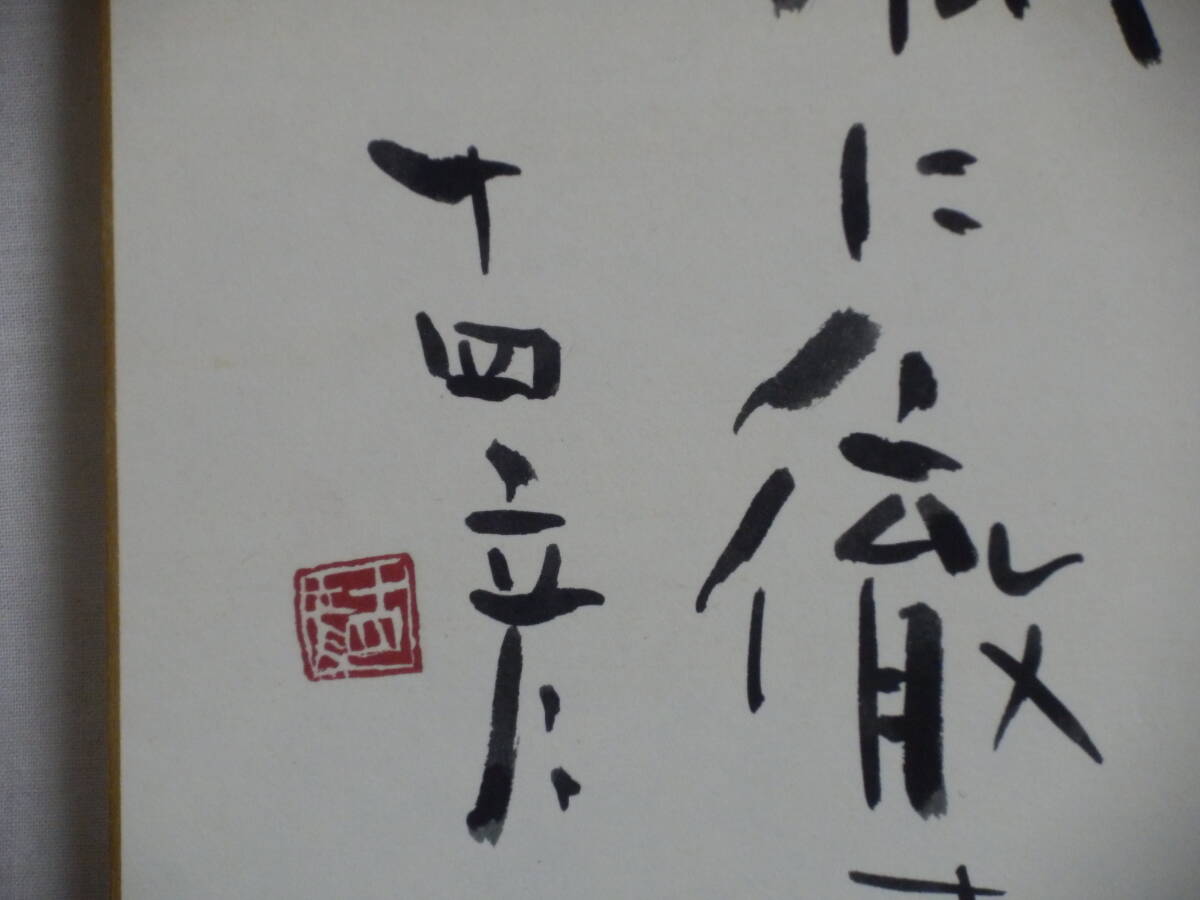 に徹す
十四彦